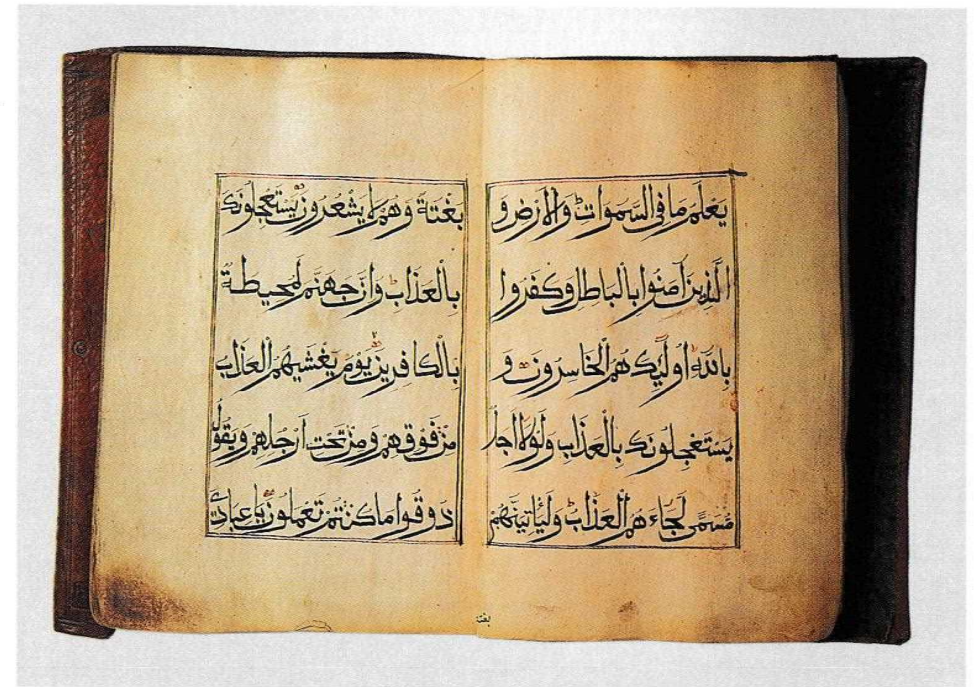 يَعْلَمُ مَا فِي السَّمَوَاتِ وَالْأَرْضِ وَ
الَّذِينَ آمَنُوا بِالْبَاطِلِ وَكَفَرُوا
بِاللَّهِ أُولَئِكَ هُمُ الْخَاسِرُونَ وَ
يَسْتَعْجِلُونَكَ بِالْعَذَابِ وَلَوْلَا أَجَلٌ
مُسَمًّى لَجَاءَ هُمُ الْعَذَابُ وَلَيَأْتِيَنَّهُمْ
بغتة
بَغْتَةً وَهُمْ لَا يَشْعُرُونَ يَسْتَعْجِلُونَكَ
بِالْعَذَابِ وَإِنَّ جَهَنَّمَ لَمُحِيطَةٌ
بِالْكَافِرِينَ يَوْمَ يَغْشَيهُمُ الْعَذَابُ
مِنْ فَوْقِهِمْ وَمِنْ تَحْتِ أَرْجُلِهِمْ وَيَقُولُ
ذُوقُوا مَا كُنْتُمْ تَعْمَلُونَ يَا عِبَادِيَ